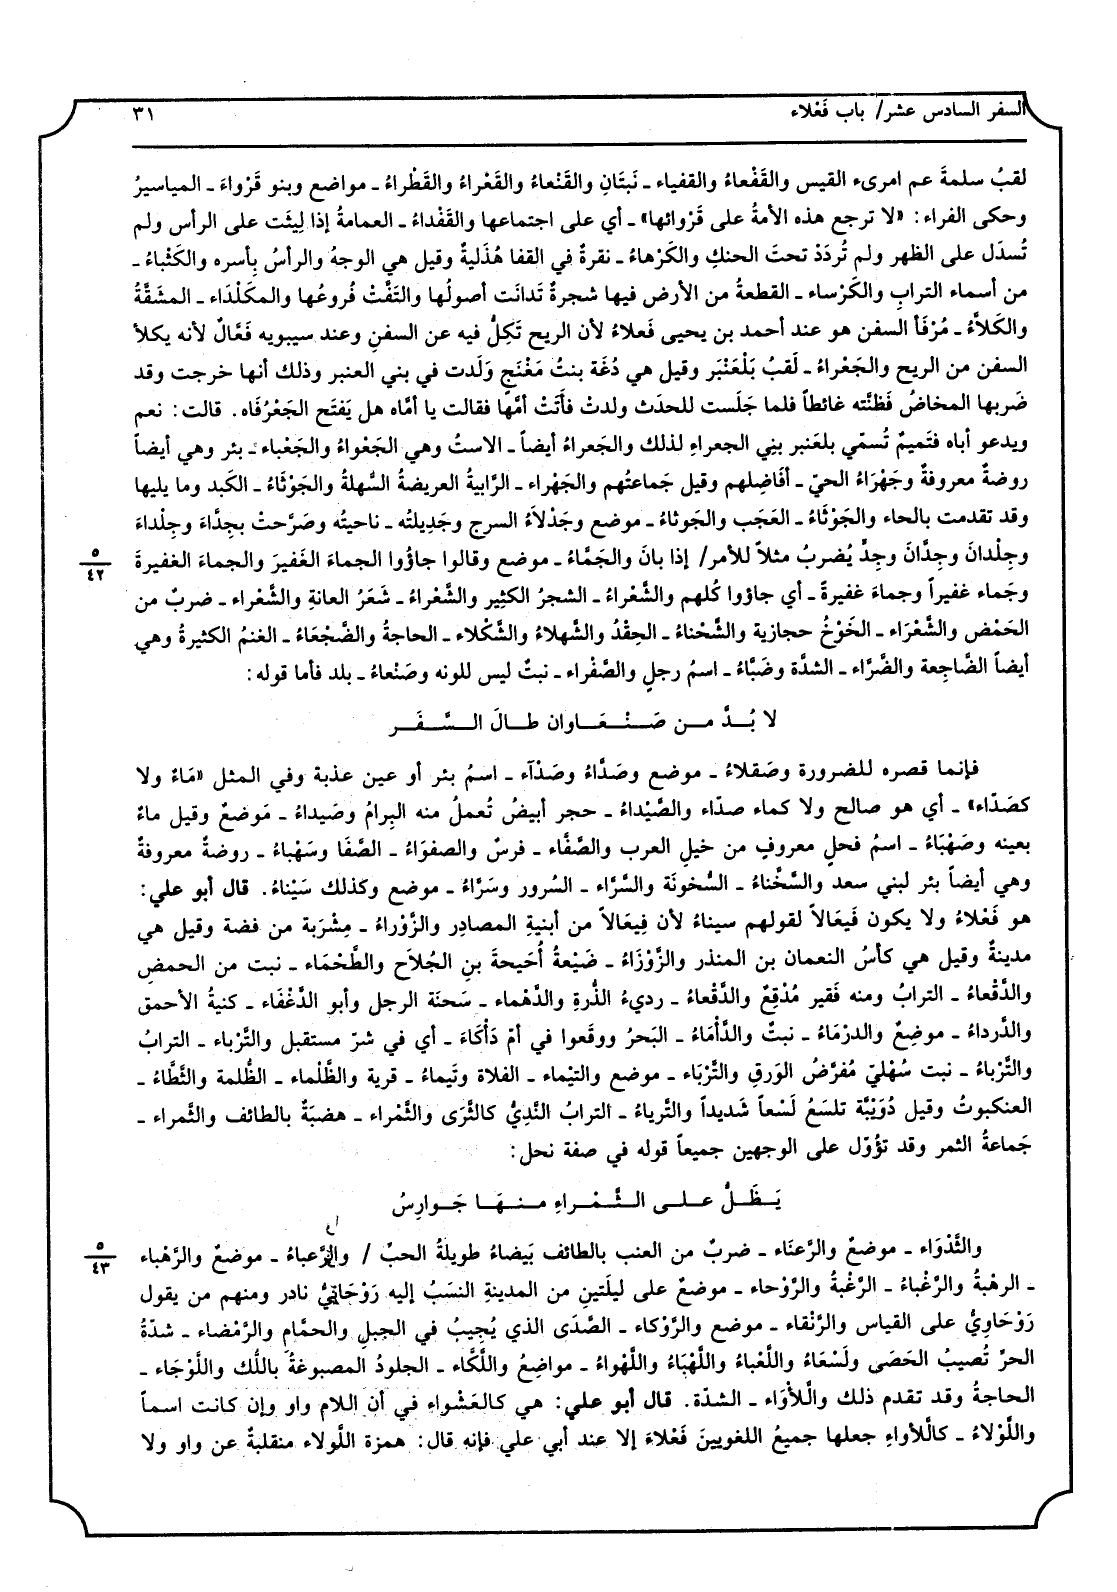 السفر السادس عشر/ باب فَعْلاء
٣١
لقبُ سلمةَ عم امرىء القيس والقَفْعاءُ والقفياء ـ نَبتَانِ والقَنْعاءُ والقَعْراءُ والقَطْراءُ ـ مواضع وبنو قَرْواءَ ـ المياسيرُ
وحكى الفراء: «لا ترجع هذه الأمةُ على قَرْوائها» ـ أي على اجتماعها والقَفْداءُ ـ العمامةُ إذا لِيثَت على الرأس ولم
تُسدَل على الظهر ولم تُردَدْ تحتَ الحنكِ والكَرْهاءُ ـ نقرةٌ في القفا هُذَليةٌ وقيل هي الوجهُ والرأسُ بِأسره والكَثْباءُ ـ
من أسماء الترابِ والكَرْساء ـ القطعةُ من الأرض فيها شجرةٌ تَدانَت أصولُها والتَفَّتْ فُروعُها والمكَلْدَاء ـ المشقَّةُ
والكَلاَّءُ ـ مُرْفَأ السفن هو عند أحمد بن يحيى فَعلاءُ لأن الريح تَكِلُّ فيه عن السفنِ وعند سيبويه فَعَّالٌ لأنه يكلأ
السفن من الريح والجَعْراءُ ـ لَقبُ بَلْعَنْبَر وقيل هي دُغَة بنتُ مَغْنَجٍ وَلَدت في بني العنبر وذلك أنها خرجت وقد
ضَربها المخاضُ فَظنَّته غائطاً فلما جَلَست للحدَث ولدتْ فأَتَتْ أمَّها فقالت يا أمَّاه هل يَفتَح الجَعْرُفَاه. قالت: نعم
ويدعو أباه فتَميمٌ تُسمّي بلعَنبر بنِي الجعراءِ لذلك والجَعراءُ أيضاً ـ الاستُ وهي الجَعْواءُ والجَعْباء ـ بئر وهي أيضاً
روضةٌ معروفةٌ وجَهْرَاءُ الحيّ ـ أفَاضِلهم وقيل جَماعتُهم والجَهْراء ـ الرَّابيةُ العريضةُ السَّهلةُ والجَوْثَاءُ ـ الكَبد وما يليها
وقد تقدمت بالحاء والجَوْثَاءُ ـ العَجَب والجَوثاءُ ـ موضع وجَدْلاَءُ السرج وجَدِيلتُه ـ ناحيتُه وصَرَّحتْ بجِدَّاءَ وجِلْداءَ
وجِلْدانَ وجِدَّانَ وجِدَّ يُضربُ مثلاً للأمر/ إذا بانَ والجَمَّاءُ ـ موضع وقالوا جاؤوا الجماءَ الغَفيرَ والجماءَ الغفيرةَ
٥
٤٢
وجَماء غفيراً وجماءَ غفيرةً ـ أي جاؤوا كُلهم والشَّعْراءُ ـ الشجرُ الكثِير والشَّعْراءُ ـ شَعَرُ العانةِ والشَّعْراء ـ ضربٌ من
الحَمْض والشَّعْرَاء ـ الخَوْخُ حجازية والشَّحْناءُ ـ الحِقْدُ والشَّهلاءُ والشَّكْلاء ـ الحاجةُ والضَّجْعَاءُ ـ الغنمُ الكثيرةُ وهي
أيضاً الضَّاجِعة والضَّرَّاء ـ الشدَّة وضَبَّاءُ ـ اسمُ رجلٍ والصَّفْراء ـ نبتٌ ليس للونه وصَنْعاءُ ـ بلد فأما قوله:
لا بُـدَّ مـن صَـنْـعَـاوان طـالَ الـسَّـفَـر
فإنما قصره للضرورة وصَقلاءُ ـ موضع وصَدَّاءُ وصَدْآء ـ اسمُ بئر أو عين عذبة وفي المثل «مَاءٌ ولا
كصَدّاء» ـ أي هو صالح ولا كماء صدّاء والصَّيْداءُ ـ حجر أبيضُ تُعملُ منه البِرامُ وصَيداءُ ـ مَوضعٌ وقيل ماءٌ
بعينه وصَهْبَاءُ ـ اسمُ فحلٍ معروفٍ من خيلِ العرب والصَّفَّاء ـ فرسٌ والصفوَاءُ ـ الصَّفَا وسَهْباءُ ـ روضةٌ معروفةٌ
وهي أيضاً بئر لبني سعد والسَّخْناءُ ـ السُّخونَة والسَّرَّاء ـ السُرور وسَرَّاءُ ـ موضع وكذلك سَيْناءُ. قال أبو علي:
هو فَعْلاءُ ولا يكون فَيعَالاً لقولهم سيناءُ لأن فِيعَالاً من أبنيةِ المصادِر والزَّوْراءُ ـ مِشْرَبة من فضة وقيل هي
مدينةٌ وقيل هي كأسُ النعمان بن المنذر والزَّوْزَاءُ ـ ضَيْعةُ أُحَيحةَ بنِ الجُلاَح والطَّحْمَاء ـ نبت من الحمضِ
والدَّقعاءُ ـ الترابُ ومنه فَقير مُدْقِعٌ والدَّقْعاءُ ـ رديءُ الذُّرةِ والدَّهْماء ـ سَحنَة الرجل وأبو الدَّغْفَاء ـ كنيةُ الأحمق
والدَّرداءُ ـ موضِعٌ والدرْمَاءُ ـ نبتٌ والدَّأْمَاءُ ـ البَحرُ ووقَعوا في أمّ دَأْكَاءَ ـ أي في شرّ مستقبل والتَّرْباء ـ الترابُ
والتَّرْباءُ ـ نبت سُهْليّ مُفْرَّضُ الوَرقِ والتَّرْبَاء ـ موضع والتيْماء ـ الفلاة وتَيماءُ ـ قرية والظَّلْماء ـ الظُّلمة والثَّطَّاءُ ـ
العنكبوتُ وقيل دُوَيْبَّة تلسَعُ لَسْعاً شَديداً والثَّرياءُ ـ الترابُ النَّدِيُّ كالثَّرَى والثَّمْراء ـ هضبَةٌ بالطائف والثَّمراء ـ
جَماعةُ الثمر وقد تؤُوّل على الوجهين جميعاً قوله في صفة نحل:
يَـظَـلُّ عـلـى الـثَّـمْـراءِ مـنـهَـا جَـوارِسُ
والثَّدْوَاء ـ موضعٌ والرَّعنَاء ـ ضربٌ من العنب بالطائف بَيضاءُ طويلةُ الحبّ / والرَّعباءُ ـ موضعٌ والرَّهْباء
٥
٤٣
ـ الرهْبةُ والرَّغْباءُ ـ الرَّغْبةُ والرَّوْحاء ـ موضعٌ على ليلَتينِ من المدينةِ النسَبُ إليه رَوْحَانِيٌّ نادر ومنهم من يقول
رَوْحَاوِيٌّ على القياس والرَنْقاء ـ موضع والرَّوْكاء ـ الصَّدَى الذي يُجِيبُ في الجبلِ والحمَّامِ والرَّمْضاء ـ شدّةُ
الحرّ تُصيبُ الحَصَى ولَسْعَاءُ واللَّعْباءُ واللَّهْبَاءُ واللَّهْواءُ ـ مواضِعُ واللَّكَّاء ـ الجلودُ المصبوغةُ باللُّك واللَّوْجَاء ـ
الحاجةُ وقد تقدم ذلك واللأْوَاء ـ الشدّة. قال أبو علي: هي كالعَشْواءِ في أن اللام واو وإن كانت اسماً
واللَّوْلاءُ ـ كاللأواءِ جعلها جميعُ اللغويينَ فَعْلاءَ إلا عند أبي علي فإنه قال: همزة اللَّولاء منقلبةٌ عن واو ولا